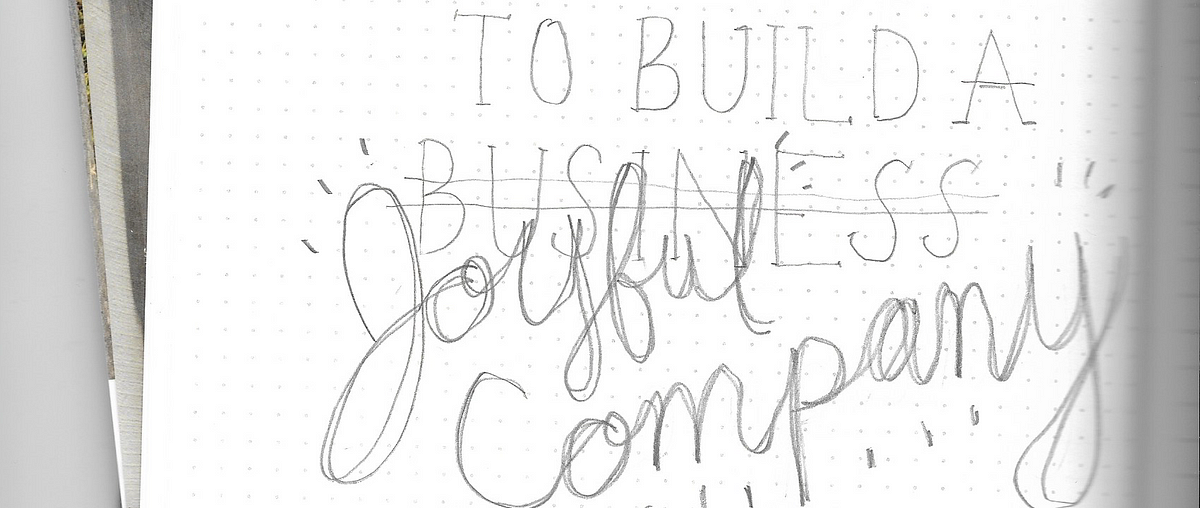 TO BUILD A
BUSINESS
Joyful
Company